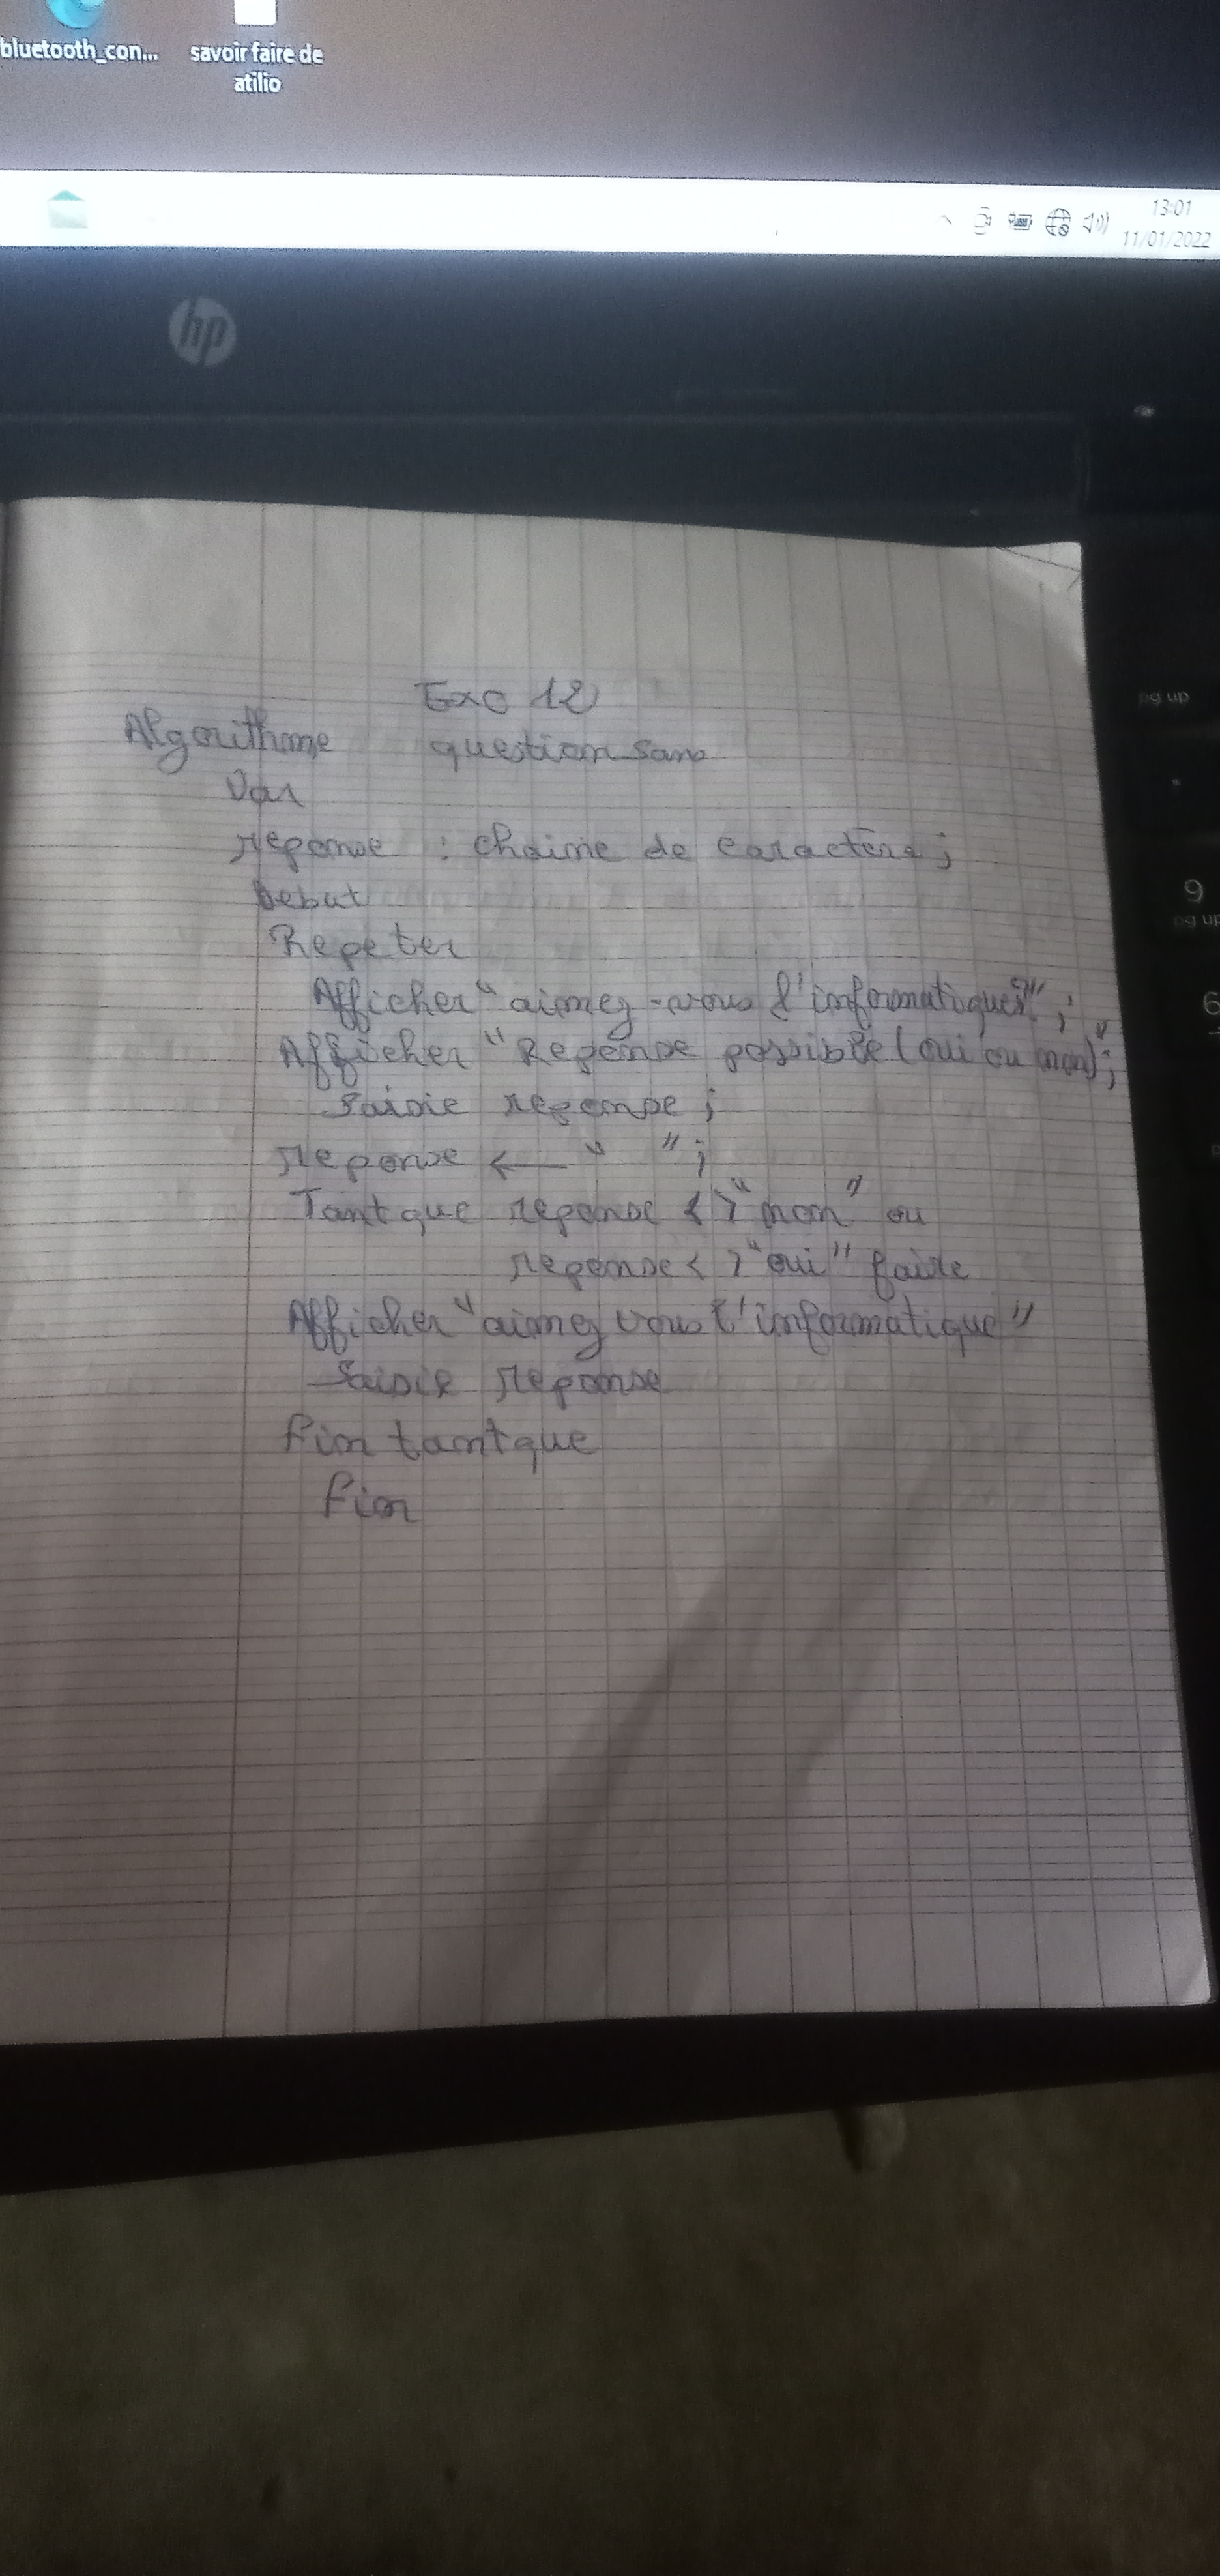 bluetooth_con... savoir faire de
atilio
13:01
11/01/2022
hp
pg up
9
pg up
6
Exo 12
Algorithme question_sans
Var
reponse : chaine de caractere;
Debut
Repeter
Afficher "aimez-vous l'informatiques?";
Afficher "Reponse possible (oui ou non)";
Saisie reponse;
reponse ← " ";
Tantque reponse <> "non" ou
reponse <> "oui" faire
Afficher "aimez vous l'informatique"
Saisie reponse
fin tantque
fin